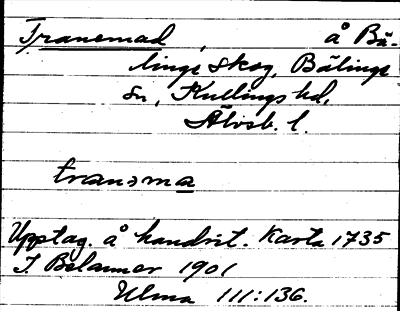 Tranemad, å Bä-
lings skog, Bälings
sn, Kullings hd,
Älvsb. l.
tranəma
Upptag. å handrit. Karta 1735
J. Belanner 1901
Ulma 111:136.